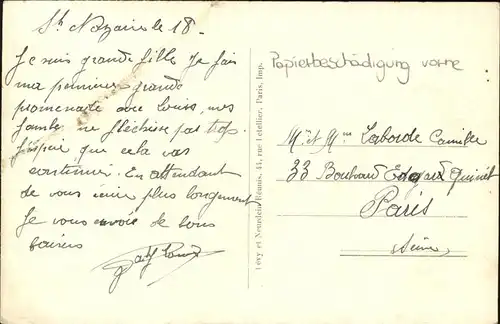 St Nazaire le 18-
Je suis grande fille Je fais
ma première grande
promenade avec Louis, mes
jambes ne fléchisse pas trop.
J'espère que cela vas
continuer. En attendant
de vous plus longuement
Je vous envoie de bons
baisers
Lévy et Neurdein Réunis, 44, rue Letellier, Paris, Imp.
Papierbeschädigung vorne
M. et Mme Laborde Camille
33 Boulvard Edgard Quinet
Paris
Seine